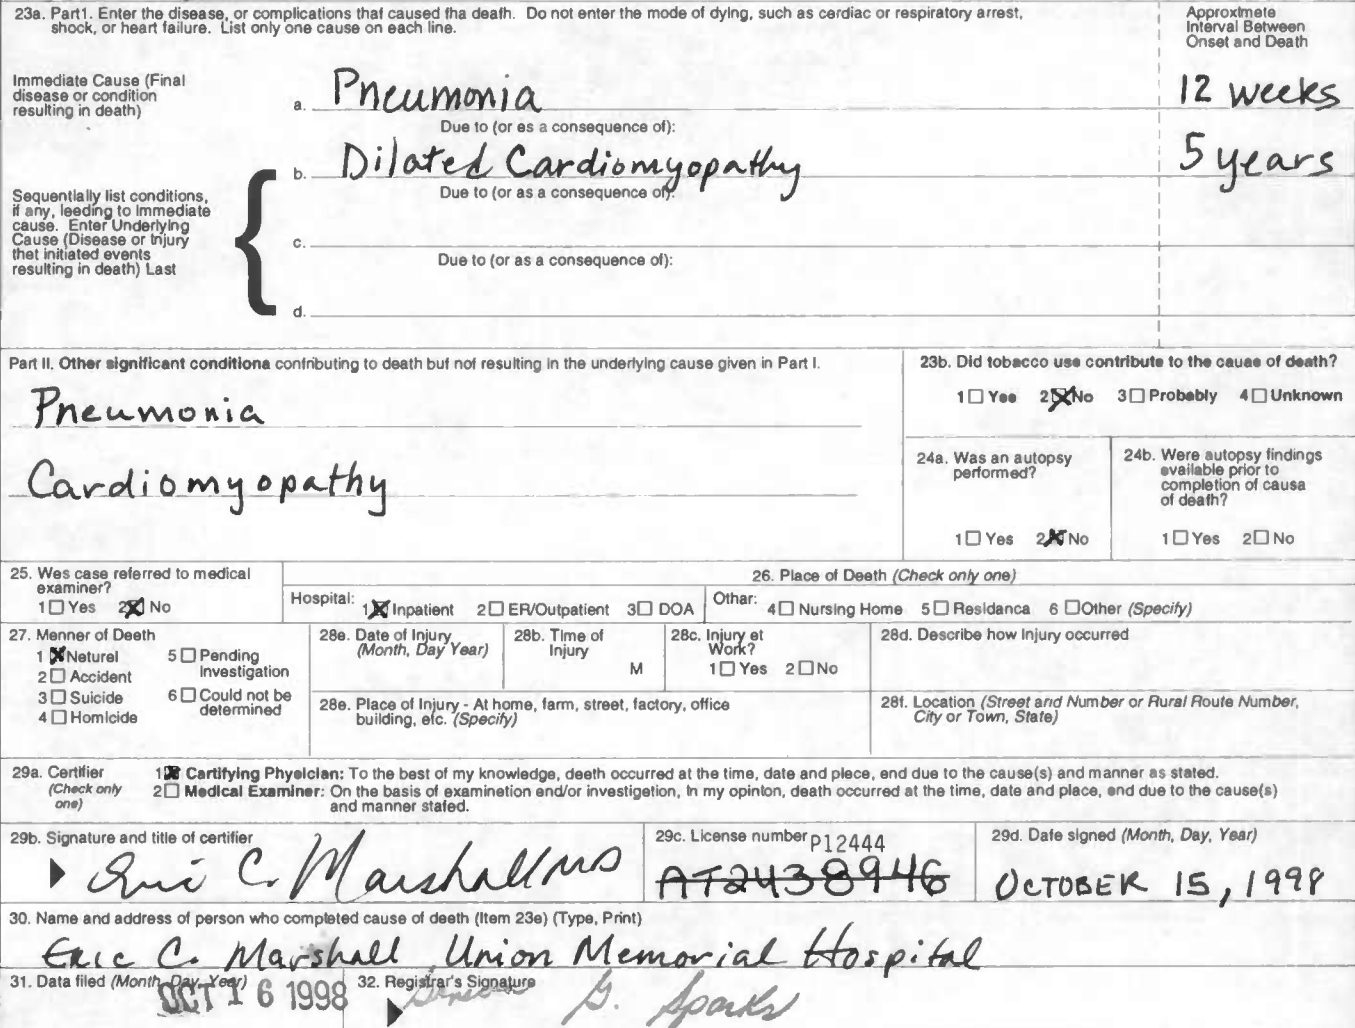 23a. Part1. Enter the disease, or complications that caused tha death. Do not enter the mode of dying, such as cardiac or respiratory arrest,
shock, or heart failure. List only one cause on each line.
Approxtmete
Interval Between
Onset and Death
Immediate Cause (Final
disease or condition
resulting in death)
a. Pneumonia 12 weeks
Due to (or es a consequence of):
b. Dilated Cardiomyopathy 5 years
Due to (or as a consequence of):
Sequentially list conditions,
if any, leeding to Immediate
cause. Enter Underlying
Cause (Disease or Injury
thet initiated events
resulting in death) Last
c.
Due to (or as a consequence of):
d.
Part II. Other significant conditiona contributing to death but not resulting in the underlying cause given in Part I.
Pneumonia
Cardiomyopathy
23b. Did tobacco use contribute to the cauae of death?
1 Yee 2 No 3 Probably 4 Unknown
24a. Was an autopsy
performed?
1 Yes 2 No
24b. Were autopsy findings
available prior to
completion of causa
of death?
1 Yes 2 No
25. Wes case referred to medical
examiner?
1 Yes 2 No
26. Place of Death (Check only one)
Hospital: 1 Inpatient 2 ER/Outpatient 3 DOA Othar: 4 Nursing Home 5 Residanca 6 Other (Specify)
27. Menner of Death
1 Neturel
2 Accident
3 Suicide
4 Homicide
5 Pending
Investigation
6 Could not be
determined
28e. Date of Injury
(Month, Day Year)
28b. Time of
Injury
M
28c. Injury et
Work?
1 Yes 2 No
28d. Describe how Injury occurred
28e. Place of Injury - At home, farm, street, factory, office
building, etc. (Specify)
28f. Location (Street and Number or Rural Route Number,
City or Town, State)
29a. Certifier
(Check only
one)
1 Cartifying Phyelclan: To the best of my knowledge, deeth occurred at the time, date and plece, end due to the cause(s) and manner as stated.
2 Medical Examiner: On the basis of exeminetion end/or investigetion, In my opinion, death occurred at the time, date and place, end due to the cause(s)
and manner stated.
29b. Signature and title of certifier
Eric C. Marshall MD
29c. License number P12444
AT2438946
29d. Date signed (Month, Day, Year)
OCTOBER 15, 1998
30. Name and address of person who completed cause of death (Item 23e) (Type, Print)
Eric C. Marshall Union Memorial Hospital
31. Data filed (Month, Day, Year)
OCT 16 1998
32. Registrar's Signature
G. Sparks